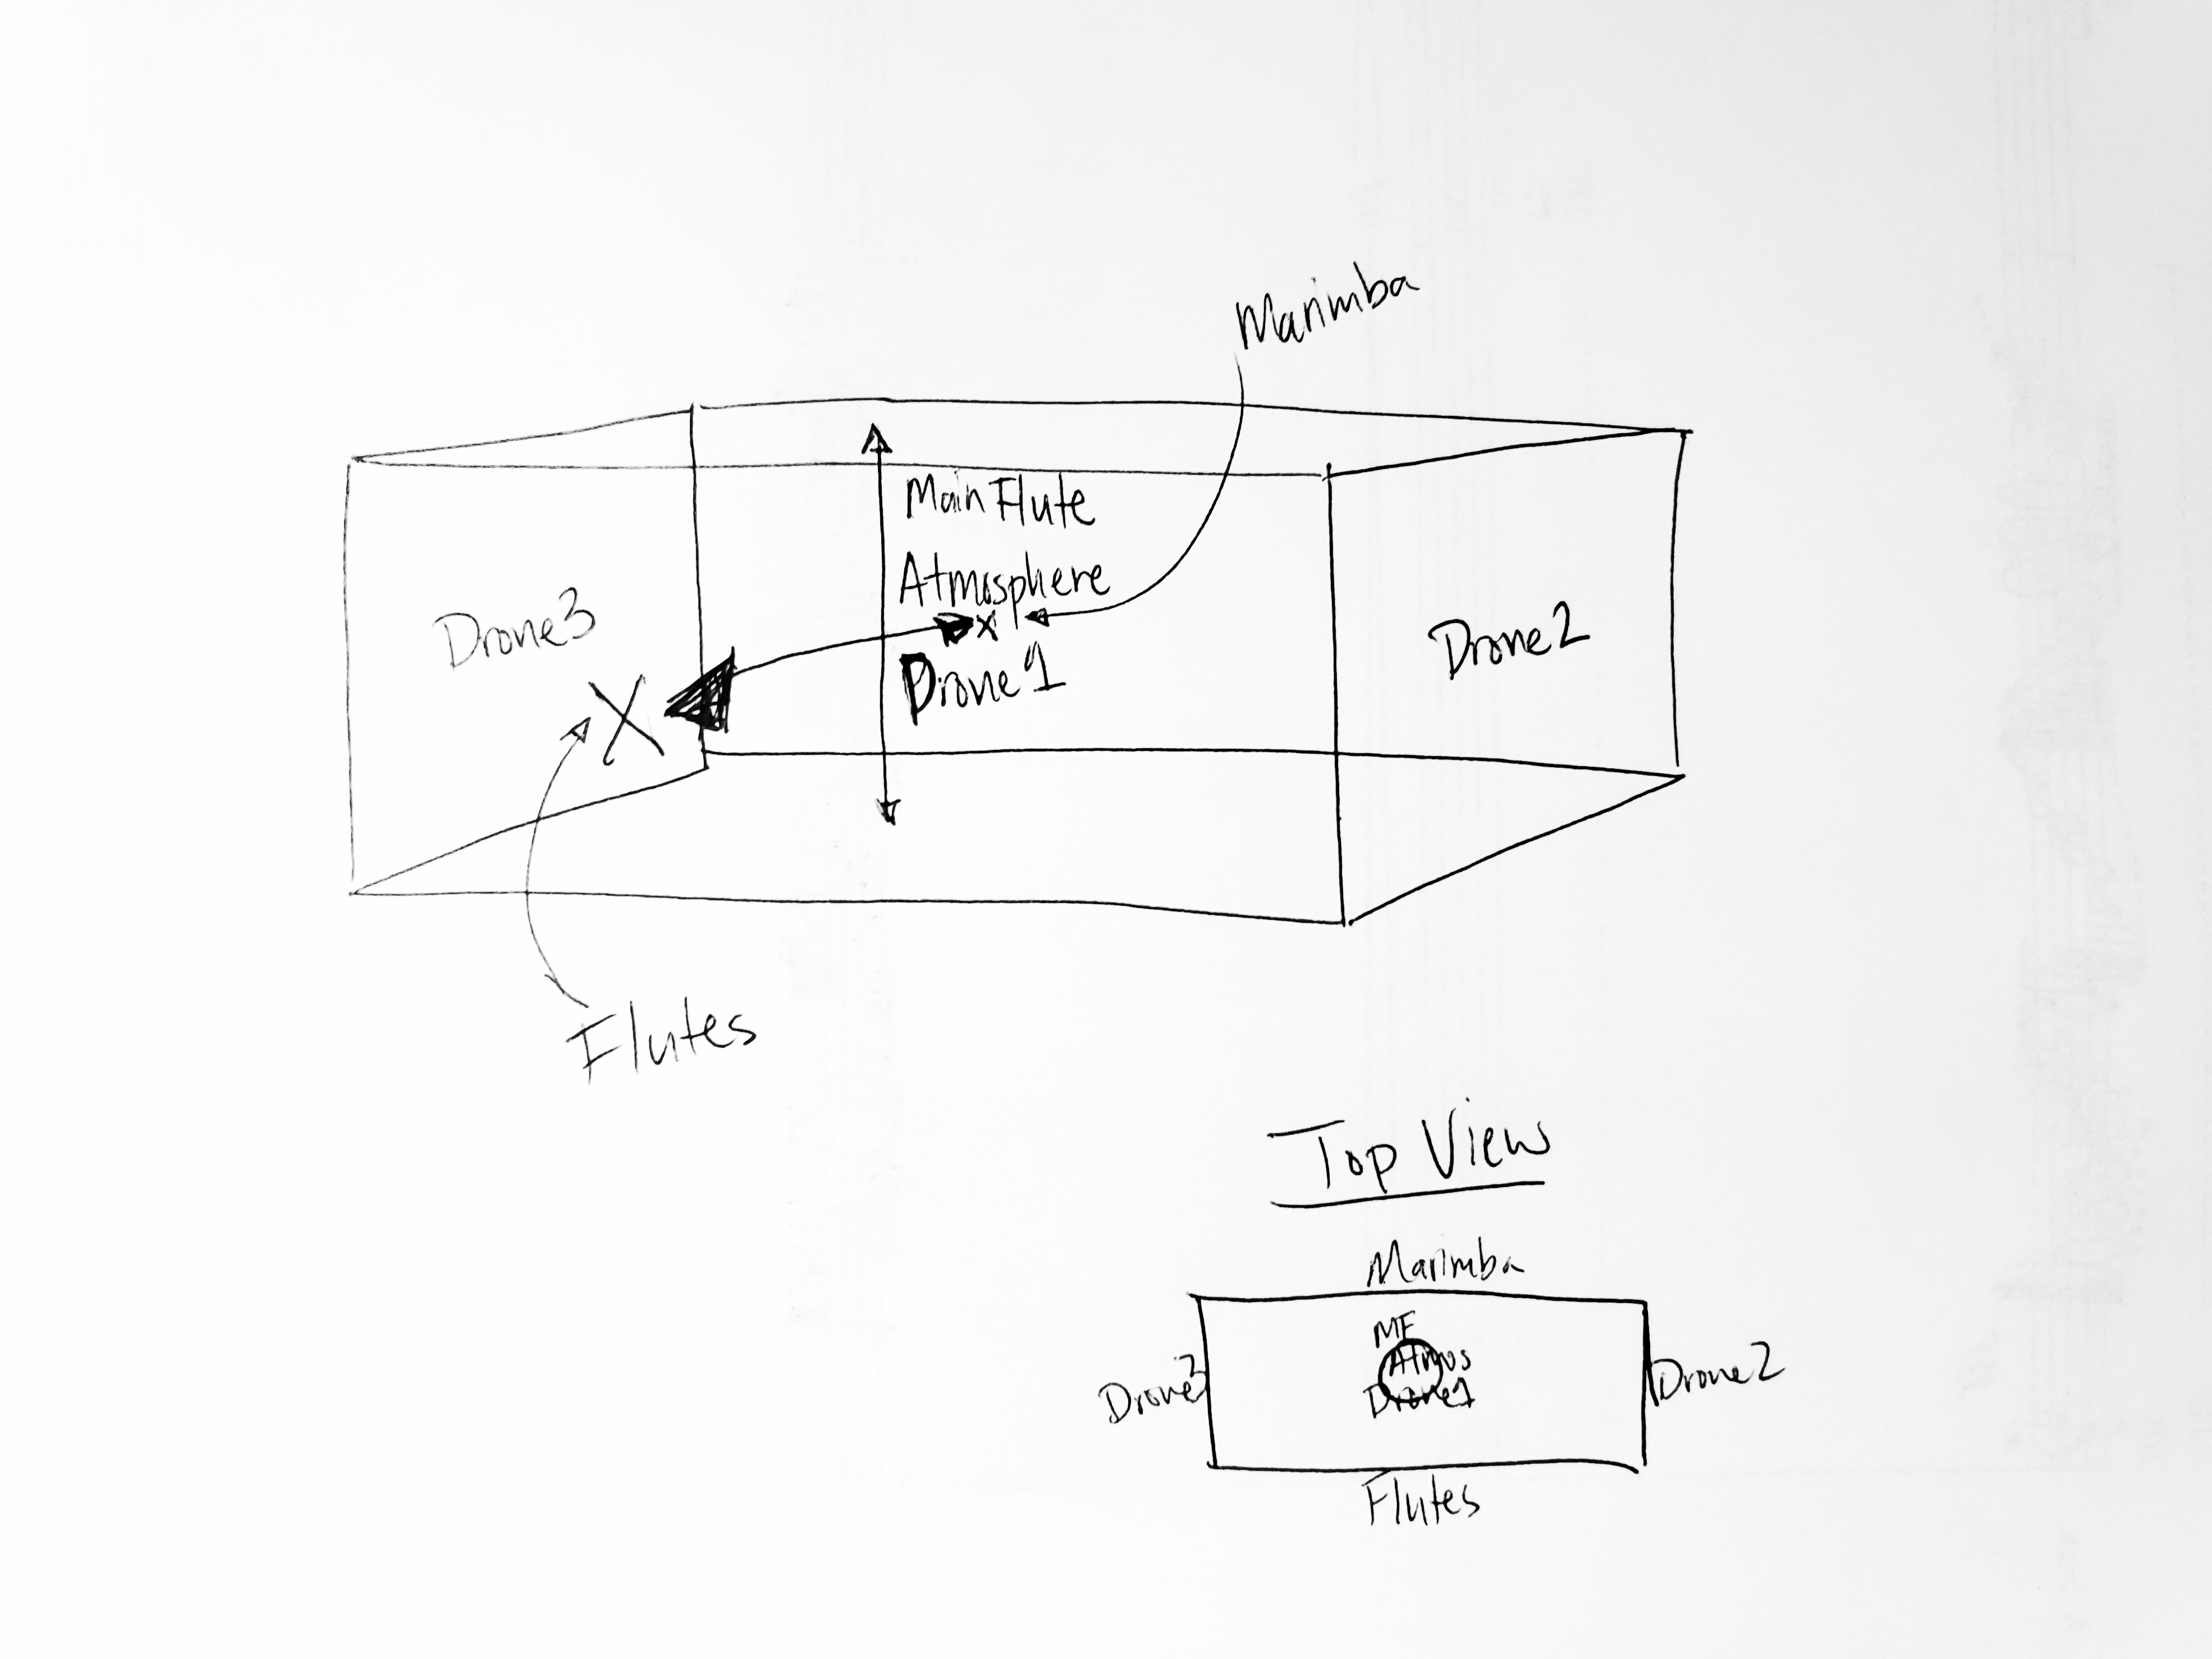 Marimba
Main Flute
Atmosphere
X
Drone 1
Drone3
X
Drone2
Flutes
Top View
Marimba
MF
Atmos
Drone1
Drone3
Drone2
Flutes